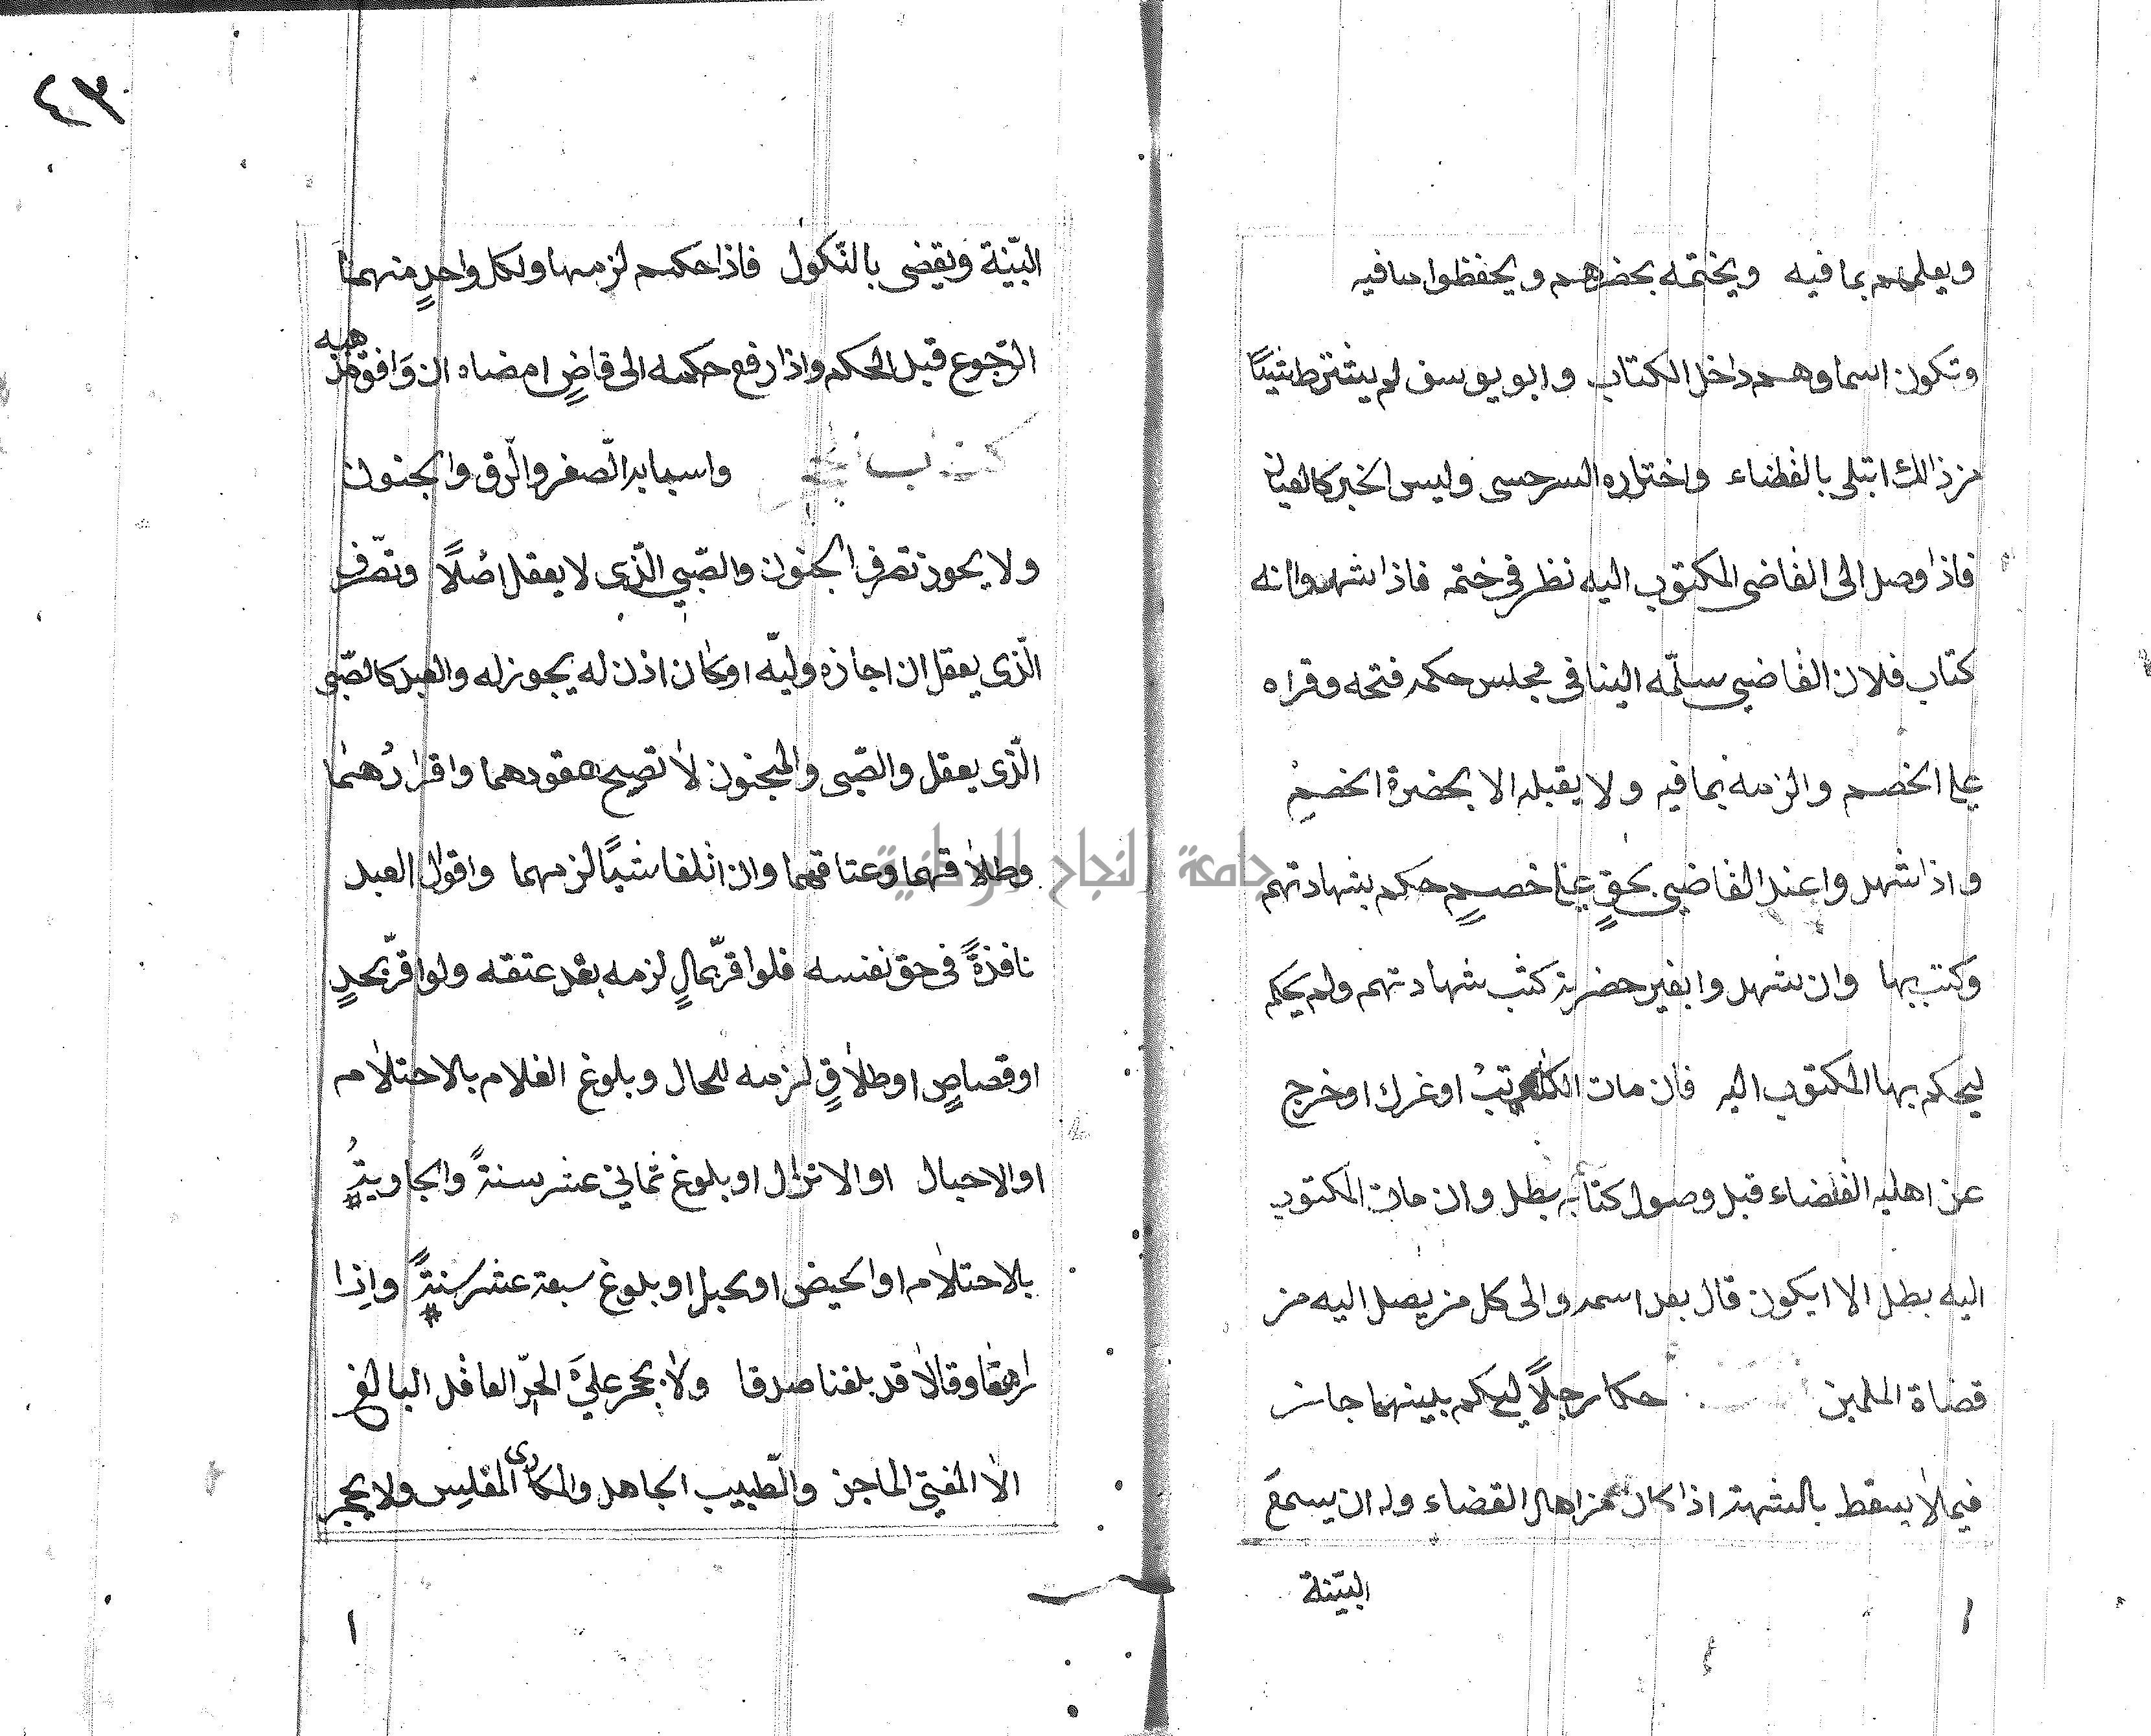 ويعلمهم بما فيه ويختمه بحضرهم ويحفظوا مافيه
وتكون اسماوهم داخل الكتاب وابو يوسف لم يشترط شيئًا
من ذالك ابتلى بالقضاء واختاره السرحسى وليس الخبر كالعيان
فاذا وصل الى القاضى المكتوب اليه نظر في ختمه فاذا شهدوا انه
كتاب فلان القاضي سلّمه الينا فى مجلس حكمه فتحه وقراه
على الخصم والزمه بما فيه ولا يقبله الا بحضرة الخصمِ
واذا شهدوا عند القاضي بحقٍ على خصمٍ حكم بشهادتهم
وكتب بها وان شهدوا بغير حضرته كتب شهادتهم ولم يحكم
ليحكم بها المكتوب اليه فان مات الكاتب او عزل او خرج
عن اهليه القضاء قبل وصول كتابه بطل وان مات المكتوب
اليه بطل الا ايكون قال بعد اسمه والى كل من يصل اليه من
قضاة الملمين حكما رجلًا ليحكم بينهما جاز
فيما لا يسقط بالشبهة اذا كان من اهل القضاء وله ان يسمعَ
البيّنة
٤٣
البيّنة ويقضى بالنّكول فاذا حكم لزمها ولكل واحدٍ منهما
الرّجوع قبل الحكم واذا رفع حكمه الى قاضٍ امضاه ان وَافق مذهبه
كتاب الحجر واسبابه الصّغر والرّق والجنون
ولا يجوز تصرف المجنون والصّبي الّذى لا يعقل اصْلًا وتصّرف
الّذى يعقل ان اجازه وليّه او كان اذن له يجوز له والعبد كالصّبى
الّذى يعقل والصّبى والمجنون لا تصح عقودهما واقرارُهما
وطلاقهما وعتاقهما وان اتلفا شيًا لزمهما واقوال العبد
نافذةً فى حق نفسه فلو اقرّ بمالٍ لزمه بعْد عتقه ولو اقرّ بحدٍ
او قصاصٍ او طلاقٍ لزمه للحال وبلوغ الغلام بالاحتلام
او الاحبال او الانزال او بلوغ ثماني عشر سنةً والجاويةُ
بالاحتلام او الحيض او الحبل او بلوغ سبعة عشر سنةً واذا
راهقا وقالا قد بلغنا صدقا ولا يحجر علىَ الحرّ العاقل البالغ
الا المفتي الماجن والطّبيب الجاهل والمكارى المفلِس ولا يحجر
جامعة النجاح الوطنية